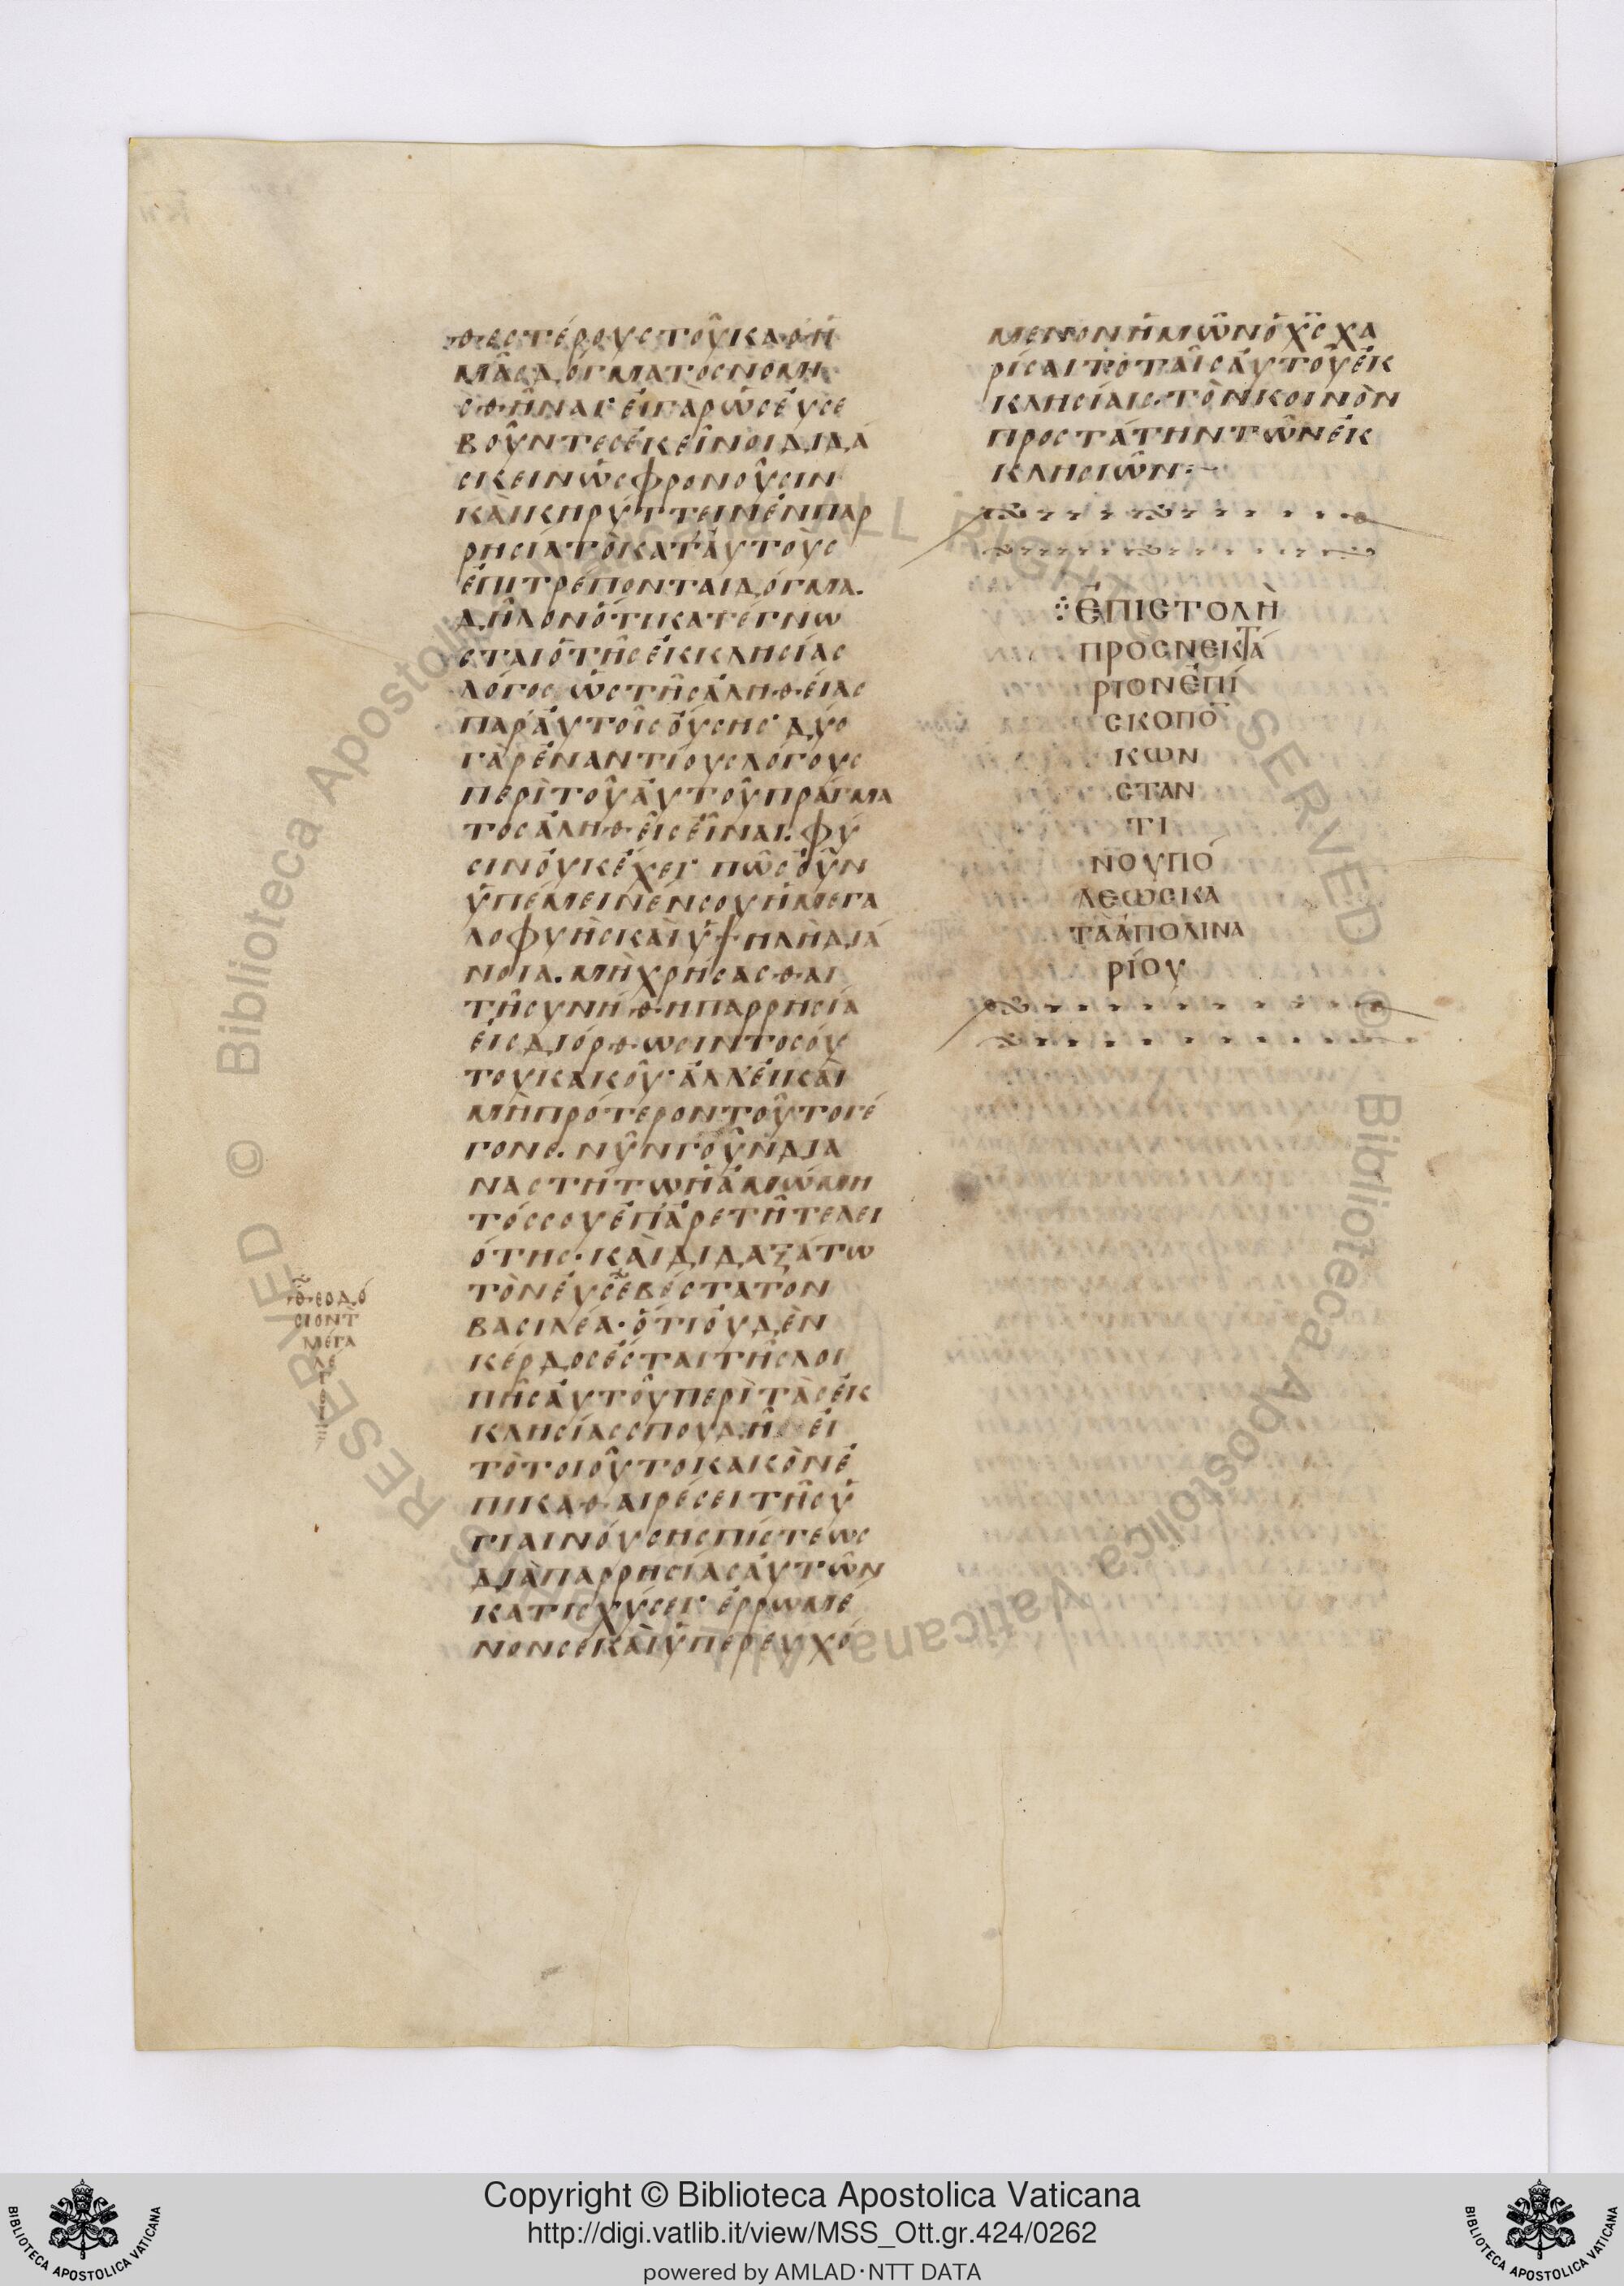 θεστέρουςτοῦκαθη
μᾶςδόγματοςνομι
σθῆναι· εἰγαρὡςεὐσε
βοῦντεςἐκεῖνοιδιδά
σκεινὡςφρονοῦσιν
καὶκηρύττεινἐνπαρ
ρησίατὸκατ'ἀυτοὺς
ἐπιτρέπονταιδόγμα.
δῆλονὅτικατέγνω
σταιὁτῆςἐκκλησίας
λόγος ὡςτῆςἀληθείας
παρ'ἀυτοῖςὄυσης· δύο
γὰρἐναντίουςλόγους
περὶτοῦἀυτοῦπράγμα
τοςἀληθεῖςεἶναι. φύ
σινὀυκέχει· πῶςὄυν
ὑπέμεινἐνσουημεγα
λοφυὴςκαὶὑψηλὴδιά
νοια. μὴχρήσασθαι
τῆσυνήθηπαρρησία
εἰςδιόρθωσιντοσού
τουκακοῦ· ἀλλ'ἐικαὶ
μὴπρότεροντοῦτογέ
γονε. νῦνγοῦνδια
ναστήτωἡἀμώμη
τόςσουἐπ'ἀρετῆτελει
ότης· καὶδιδαξάτω
τὸνἐυσεβέστατον
βασιλέα· ὅτιὀυδὲν
κέρδοςἔσταιτῆςλοι
πῆςἀυτοῦπερὶτὰςἐκ
κλησίαςσπουδῆ εἰ
τὸτοιοῦτοκακὸνἐ
πικαθαιρέσειτῆςὑ
γιαινούσηςπίστεως
διὰπαρρησίαςἀυτῶν
κατισχύσει· ἐρρωμέ
νονσεκαὶὑπερευχό
θεοδό
σιοντ
μέγα
λέ
μενονἡμῶνὁχςχα
ρίσαιτοταῖςἀυτοῦἐκ
κλησίαις. τὸνκοινὸν
προστάτηντῶνἐκ
κλησιῶν:~
ἐπιστολὴ
προςνεκτά
ριονἐπί
σκοπο
κων
σταν
τι
νουπό
λεωςκα
τὰἀπολινα
ρίου
Copyright © Biblioteca Apostolica Vaticana
http://digi.vatlib.it/view/MSS_Ott.gr.424/0262
powered by AMLAD·NTT DATA